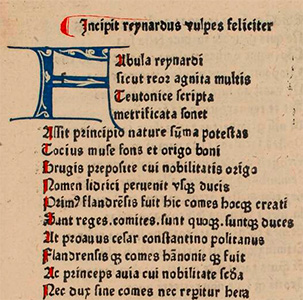 Incipit reynardus vulpes feliciter
Fabula reynardi
sicut reor agnita multis
Teutonice scripta
metrificata sonet
Assit principio nature sūma potestas
Tocius muse fons et origo boni
Brugis preposite cui nobilitatis origo
Nomen lidrici peruenit vsqꝫ ducis
Primꝰ flandrēsis fuit hic comes hocqꝫ creati
Sunt reges. comites. sunt quoqꝫ. suntqꝫ duces
At proauus cesar constantino politanus
Flandrensis qꝫ comes hānonie qꝫ fuit
Ac princeps auia cui nobilitate scd̄a
Nec dux sine comes nec repitur hera